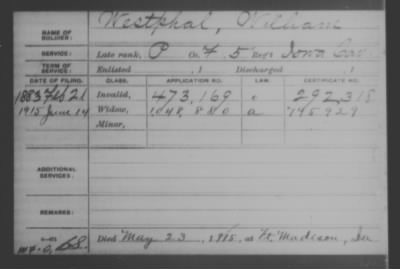 Westphal, William
NAME OF SOLDIER:
SERVICE: Late rank, P Co. F, 5 Reg't Iowa Cav.
TERM OF SERVICE: Enlisted , 1 Discharged , 1
DATE OF FILING. CLASS. APPLICATION NO. LAW. CERTIFICATE NO.
1883 Feb 21 Invalid, 473,169 292,318
1915 June 14 Widow, 1048,840 a 795929
Minor,
ADDITIONAL SERVICES:
REMARKS:
Died May 23, 1915, at Ft. Madison, Ia